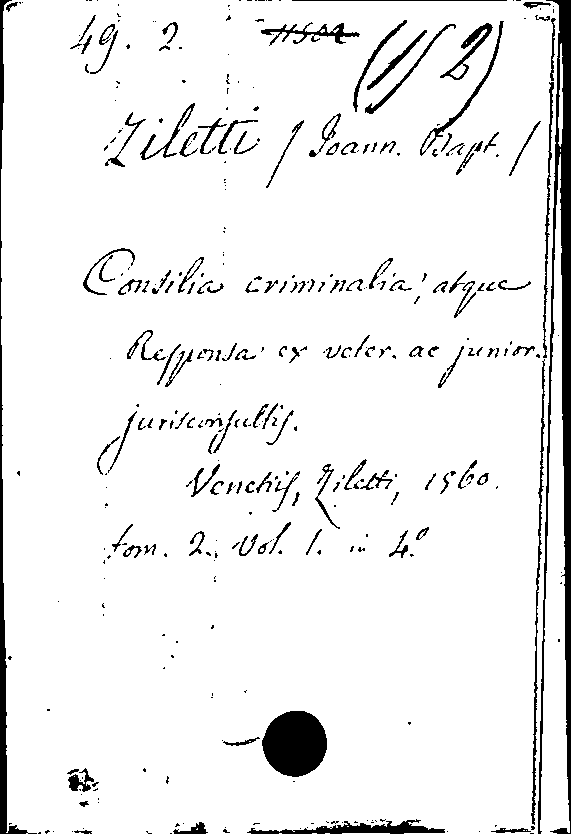 49. 2. (1/2)
Ziletti / Joann. Bapt. /
Consilia criminalia, atque
Responsa ex veter. ac junior.
jurisconsultis.
Venetiis, Ziletti, 1560.
tom. 2. Vol. 1. in 4.º